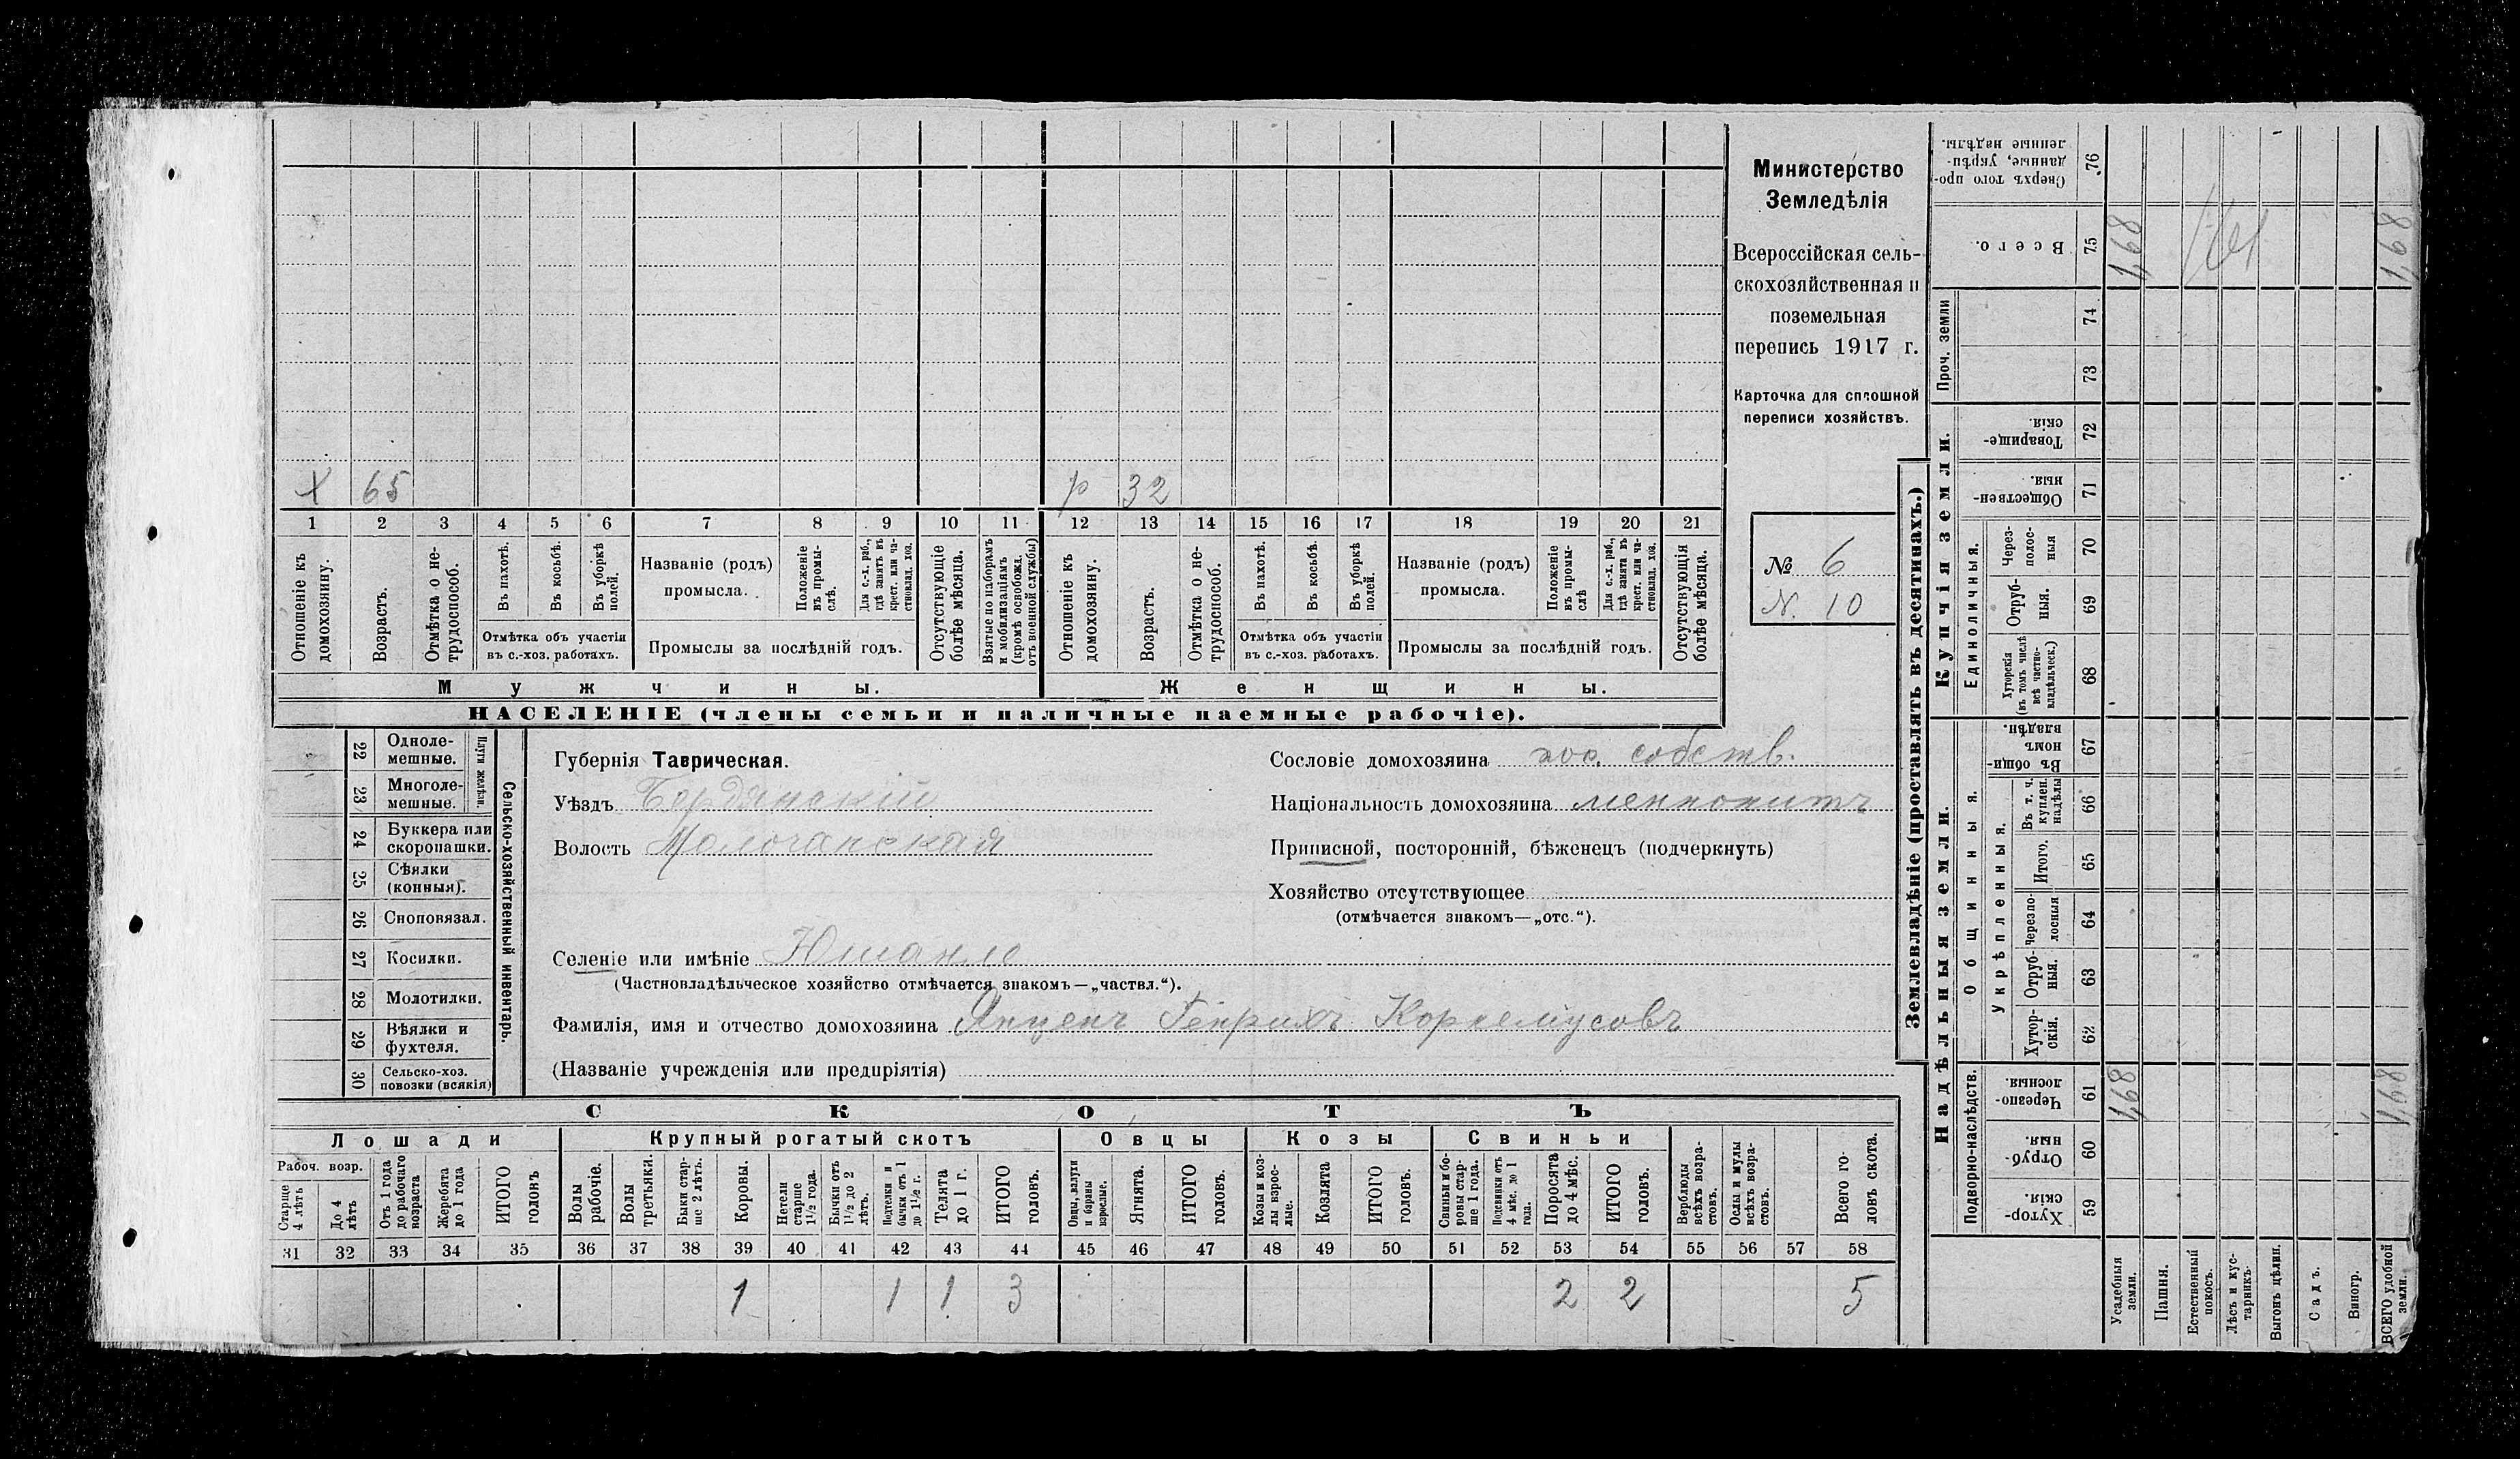 Х 65 р 32
1 2 3 4 5 6 7 8 9 10 11 12 13 14 15 16 17 18 19 20 21
Отношеніе къ домохозяину.
Возрастъ.
Отмѣтка о нетрудоспособ.
Въ пахотѣ.
Въ косьбѣ.
Въ уборкѣ полей.
Отмѣтка объ участіи
въ с.-хоз. работахъ.
Названіе (родъ)
промысла.
Положеніе въ промыслѣ.
Для с.-х. раб., гдѣ занятъ въ крест. или частновлад. хоз.
Промыслы за послѣдній годъ.
Отсутствующіе болѣе мѣсяца.
Взятые по наборамъ и мобилизаціямъ (кромѣ освобожд. отъ военной службы)
Отношеніе къ домохозяину.
Возрастъ.
Отмѣтка о нетрудоспособ.
Въ пахотѣ.
Въ косьбѣ.
Въ уборкѣ полей.
Отмѣтка объ участіи
въ с.-хоз. работахъ.
Названіе (родъ)
промысла.
Положеніе въ промыслѣ
Для с.-х. раб., гдѣ заняти въ крест. или частновлад. хоз.
Промыслы за послѣдній годъ.
Отсутствующія болѣе мѣсяца.
Мужчины.
Женщины.
НАСЕЛЕНІЕ (члены семьи и наличные наемные рабочіе).
Министерство
Земледѣлія
Всероссійская сель-
скохозяйственная и
поземельная
перепись 1917 г.
Карточка для сплошной
переписи хозяйствъ.
№ 6
N. 10
22 Одноле-
мешные.
23 Многоле-
мешные.
Плуги желѣзн.
24 Буккера или
скоропашки.
25 Сѣялки
(конныя).
26 Сноповязал.
27 Косилки.
28 Молотилки.
29 Вѣялки и
фухтеля.
30 Сельско-хоз.
повозки (всякія)
Сельско-хозяйственный инвентарь.
Губернія Таврическая.
Уѣздъ Бердянскій
Волость Молочанская
Сословіе домохозяина пос. собств.
Національность домохозяина меннонитъ
Приписной, посторонній, бѣженецъ (подчеркнуть)
Хозяйство отсутствующее
(отмѣчается знакомъ—„отс.“).
Селеніе или имѣніе Юшанле
(Частновладѣльческое хозяйство отмѣчается знакомъ—„частвл.“).
Фамилія, имя и отчество домохозяина Янценъ Генрихъ Корнеліусовъ
(Названіе учрежденія или предпріятія)
СКОТЪ
Лошади
Крупный рогатый скотъ
Овцы
Козы
Свиньи
Рабоч. возр.
Старше 4 лѣтъ
До 4 лѣтъ
Отъ 1 года до рабочаго возраста
Жеребята до 1 года
ИТОГО головъ
Волы рабочіе.
Волы третьяки.
Быки старше 2 лѣтъ.
Коровы.
Нетели старше 1½ года.
Бычки отъ 1½ до 2 лѣтъ.
Подтелки и бычки отъ 1 до 1½ г.
Телята до 1 г.
ИТОГО головъ.
Овцы, валухи и бараны взрослые.
Ягнята.
ИТОГО головъ.
Козы и козлы взрослые.
Козлята
ИТОГО головъ.
Свиньи и боровы старше 1 года.
Подсвинки отъ 4 мѣс. до 1 года.
Поросята до 4 мѣс.
ИТОГО головъ.
Верблюды всѣхъ возрастовъ.
Ослы и мулы всѣхъ возрастовъ.
Всего головъ скота.
31 32 33 34 35 36 37 38 39 40 41 42 43 44 45 46 47 48 49 50 51 52 53 54 55 56 57 58
1 1 1 3 2 2 5
Землевладѣніе (проставлять въ десятинахъ.)
Надѣльныя земли.
Купчія земли.
Проч. земли
Подворно-наслѣдств.
Общинныя.
Укрѣпленныя.
Единоличныя.
Хуторскія. 59
Отрубныя. 60
Черезполосныя. 61
Хуторскія. 62
Отрубныя. 63
Черезполосныя 64
Итого. 65
Въ т. ч. куплен. надѣлы 66
Въ общиномъ владѣн. 67
Хуторскія (въ томъ числѣ всѣ частновладѣльческ.) 68
Отрубныя. 69
Черезполосныя 70
Общественныя. 71
Товарищескія. 72
73
74
Всего. 75
Сверхъ того проданные, укрѣпленные надѣлы. 76
Усадебныя земли.
Пашня.
Естественный покосъ.
Лѣсъ и кустарникъ.
Выгонъ цѣлин.
Садъ.
Виногр.
ВСЕГО удобной земли.